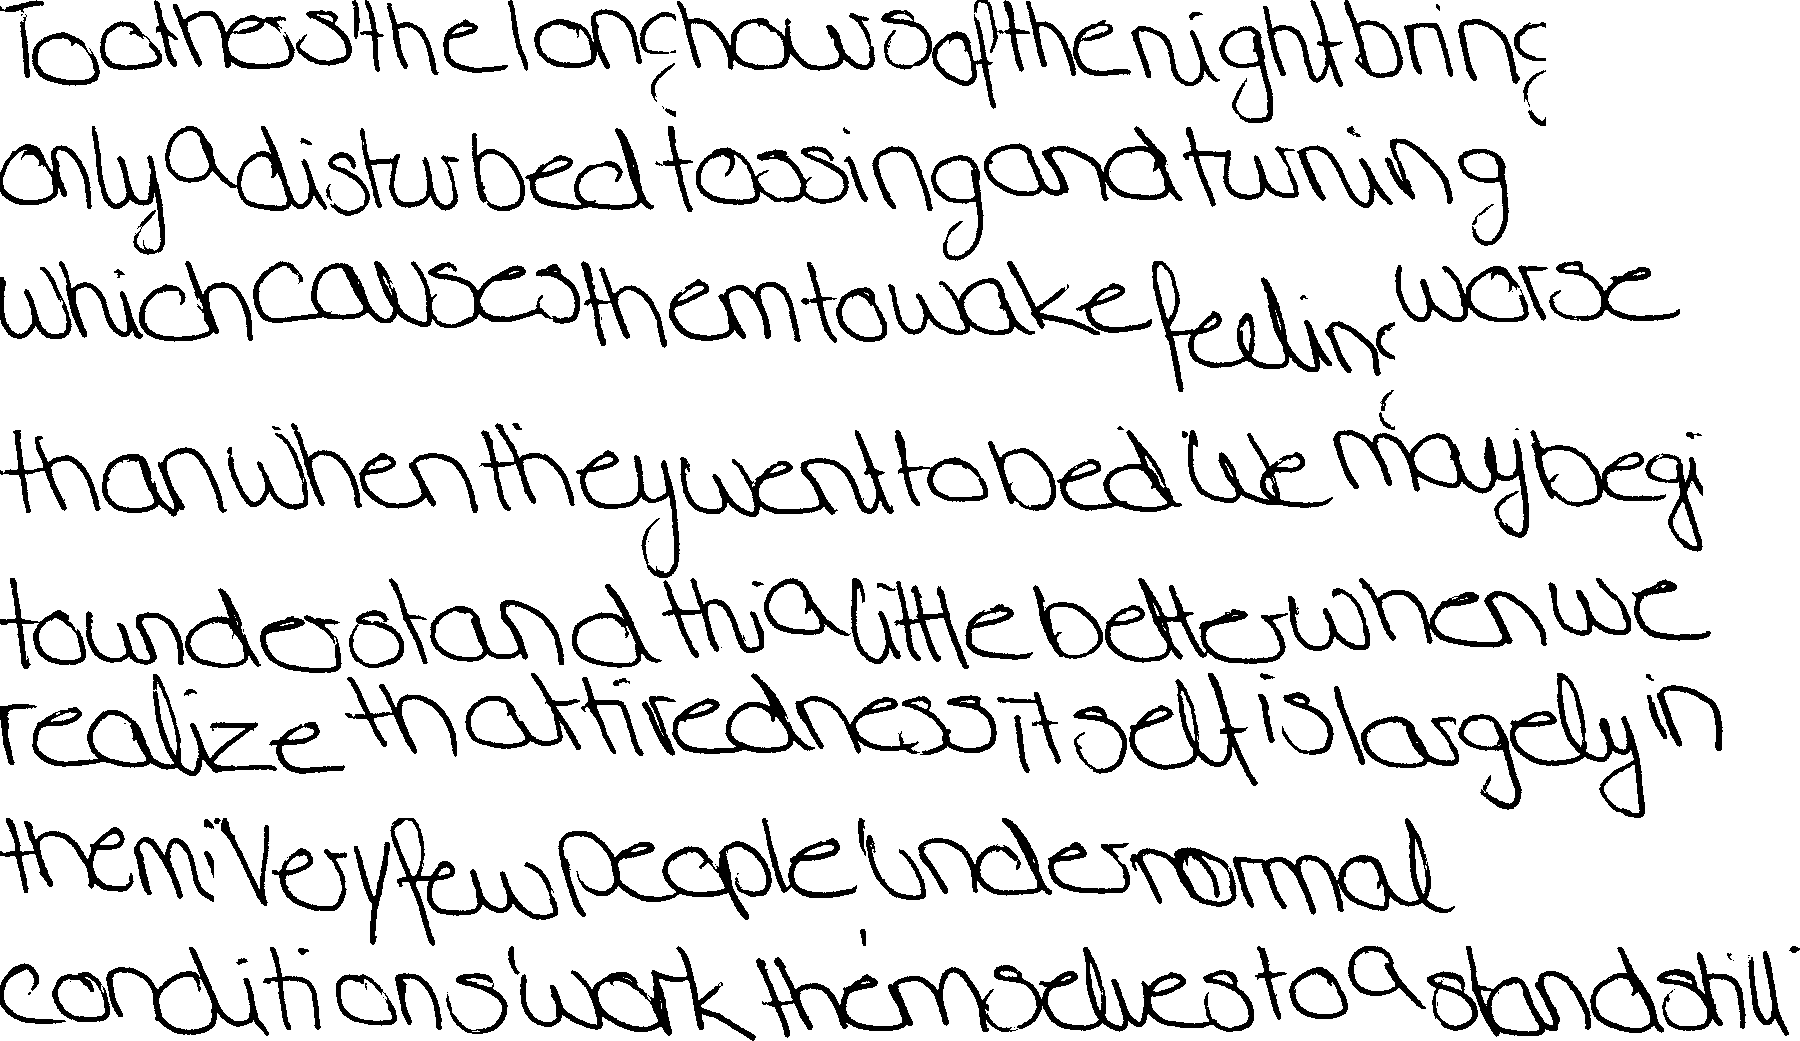 To others the long hours of the night bring
only a disturbed tossing and turning
which causes them to wake feeling worse
than when they went to bed We may begi
to understand thi a little better when we
realize that tiredness itself is largely in
the mi Very few people under normal
conditions work themselves to a standstill